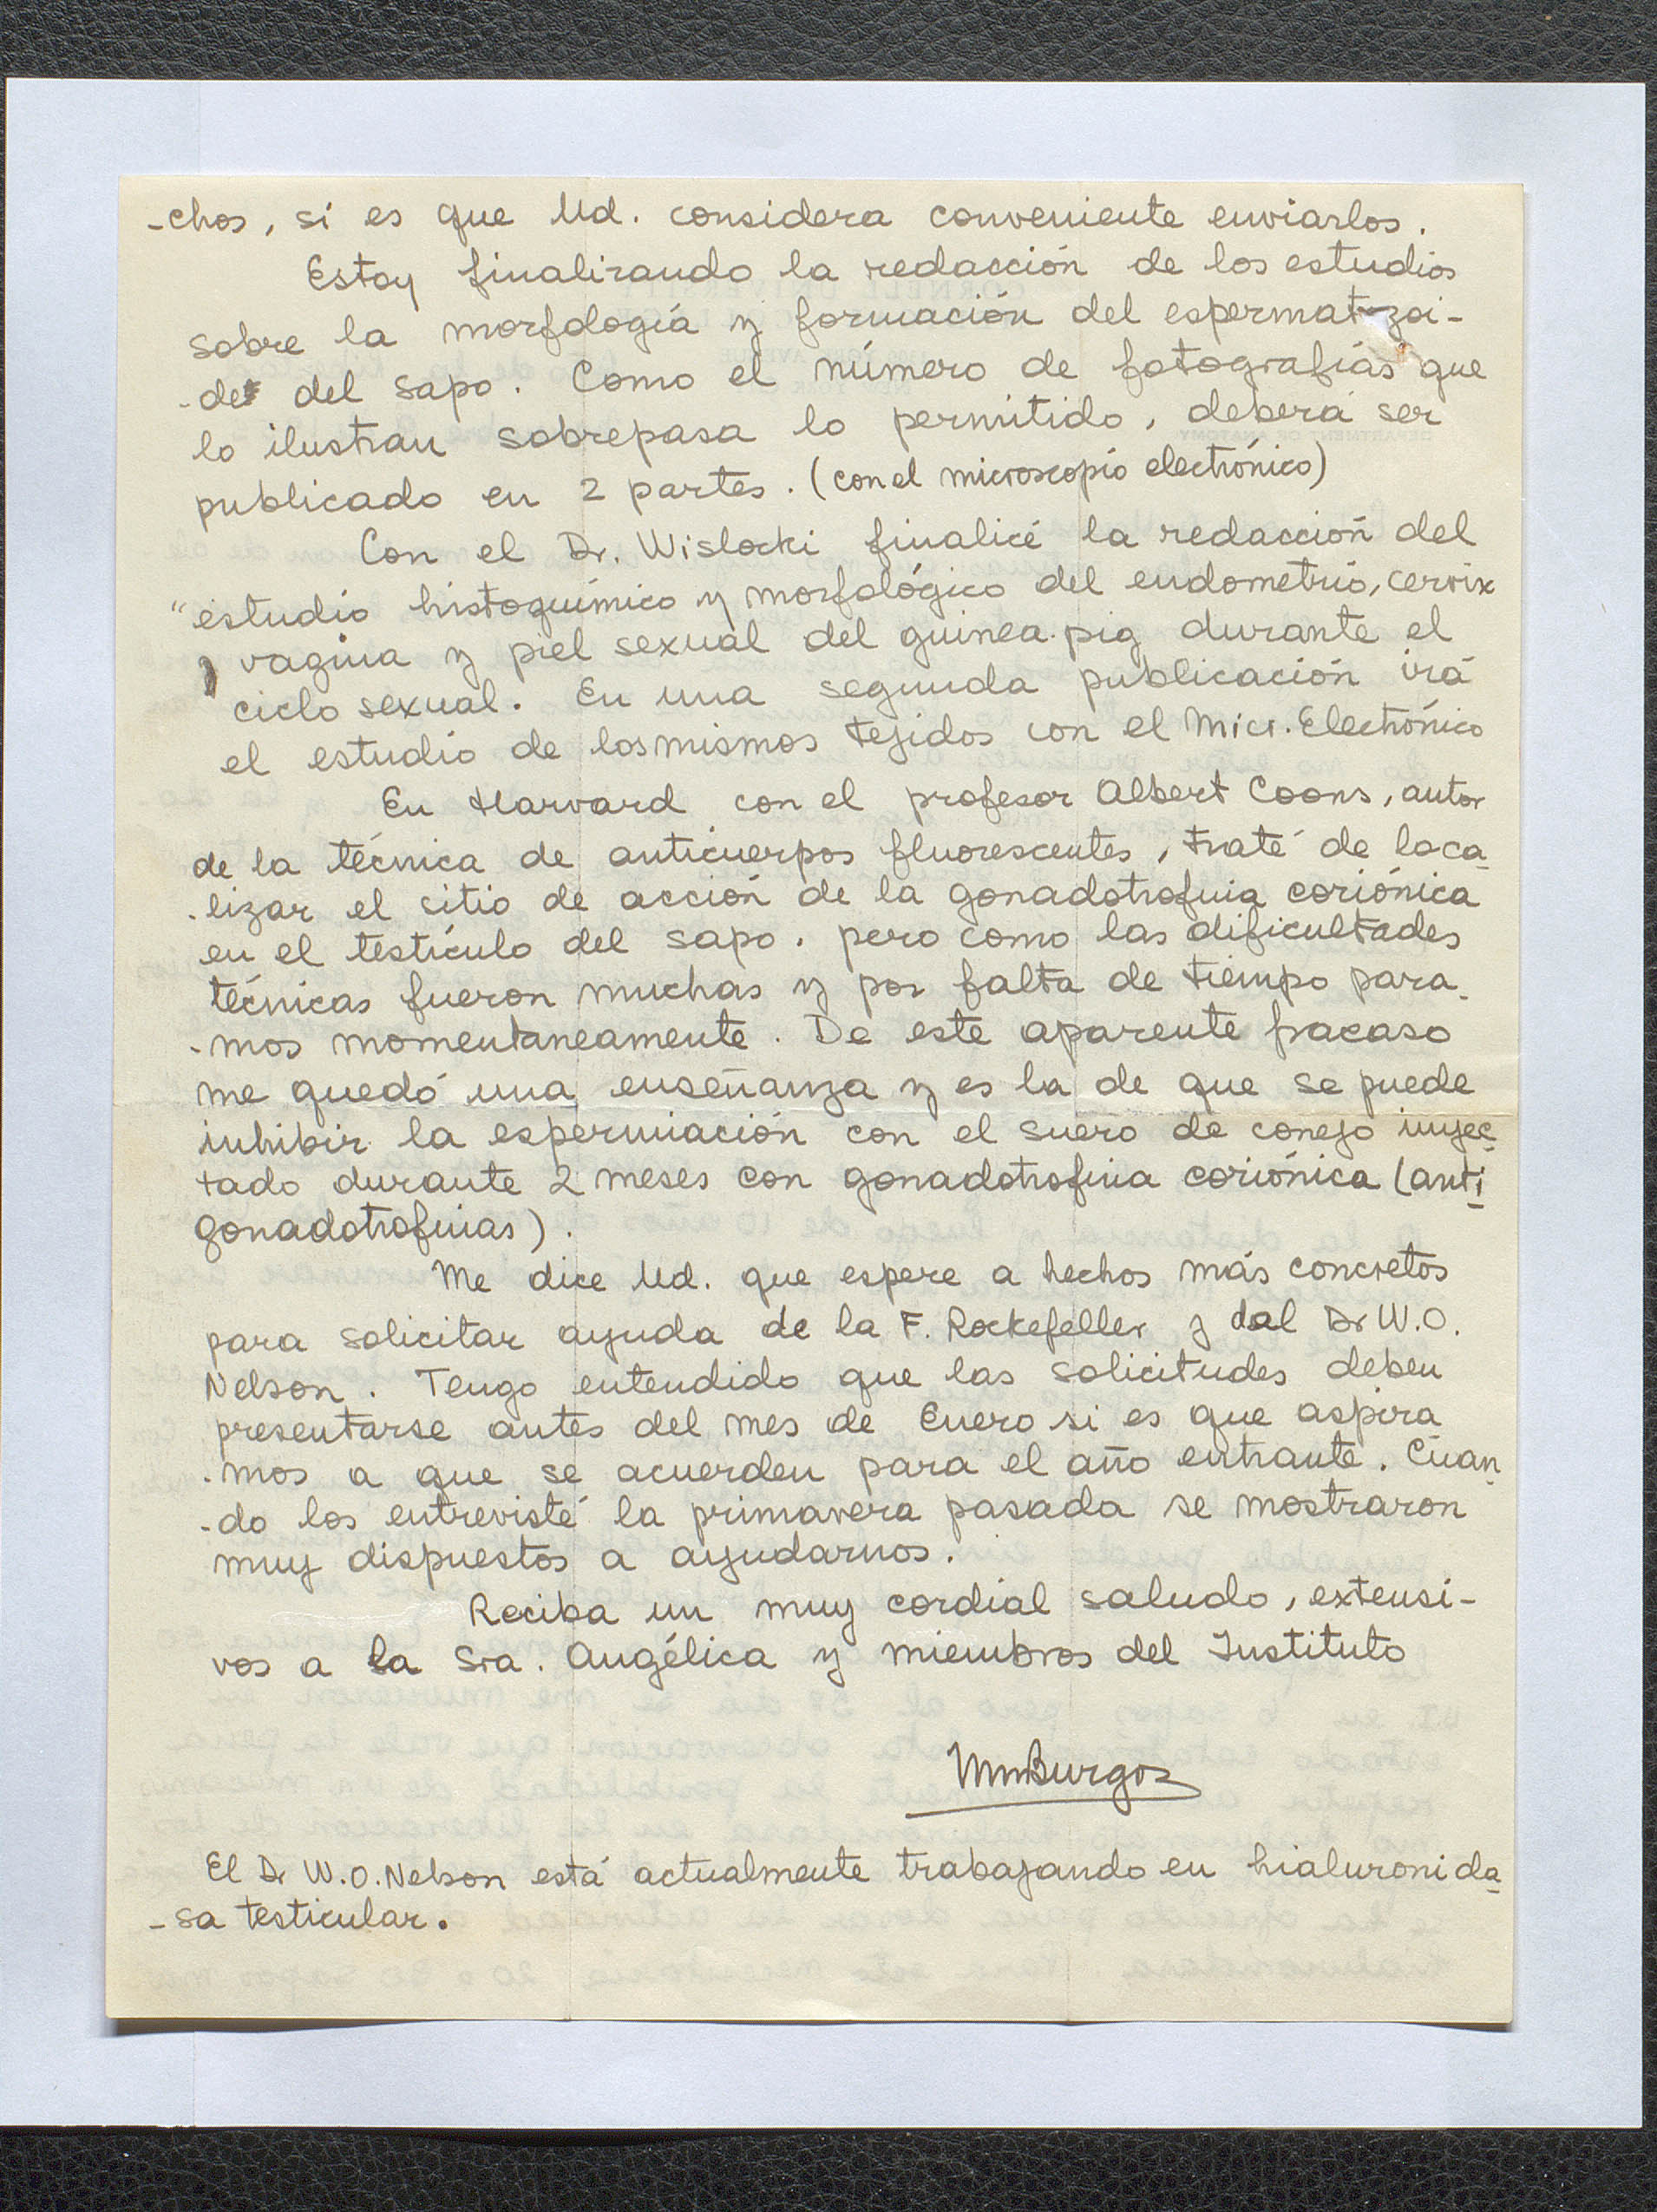 -chos, si es que Ud. considera conveniente enviarlos.
Estoy finalizando la redacción de los estudios
sobre la morfología y formación del espermatozoi-
-de del sapo. Como el número de fotografías que
lo ilustran sobrepasa lo permitido, deberá ser
publicado en 2 partes. (con el microscopio electrónico)
Con el Dr. Wislocki finalicé la redacción del
"estudio histoquímico y morfológico del endometrio, cervix
vagina y piel sexual del guinea-pig durante el
ciclo sexual. En una segunda publicación irá
el estudio de los mismos tejidos con el Micr. Electrónico
En Harvard con el profesor Albert Coons, autor
de la técnica de anticuerpos fluorescentes, traté de loca-
-lizar el sitio de acción de la gonadotrofina coriónica
en el testículo del sapo. pero como las dificultades
técnicas fueron muchas y por falta de tiempo para-
-mos momentaneamente. De este aparente fracaso
me quedó una enseñanza y es la de que se puede
inhibir la espermiación con el suero de conejo inyec-
tado durante 2 meses con gonadotrofina coriónica (anti-
gonadotrofinas).
Me dice Ud. que espere a hechos más concretos
para solicitar ayuda de la F. Rockefeller y dal Dr W.O.
Nelson. Tengo entendido que las solicitudes deben
presentarse antes del mes de Enero si es que aspira
-mos a que se acuerden para el año entrante. Cuan-
-do los entrevisté la primavera pasada se mostraron
muy dispuestos a ayudarnos.
Reciba un muy cordial saludo, extensi-
vos a la Sra. Angélica y miembros del Instituto
MmBurgos
El Dr W.O. Nelson está actualmente trabajando en hialuronida-
-sa testicular.